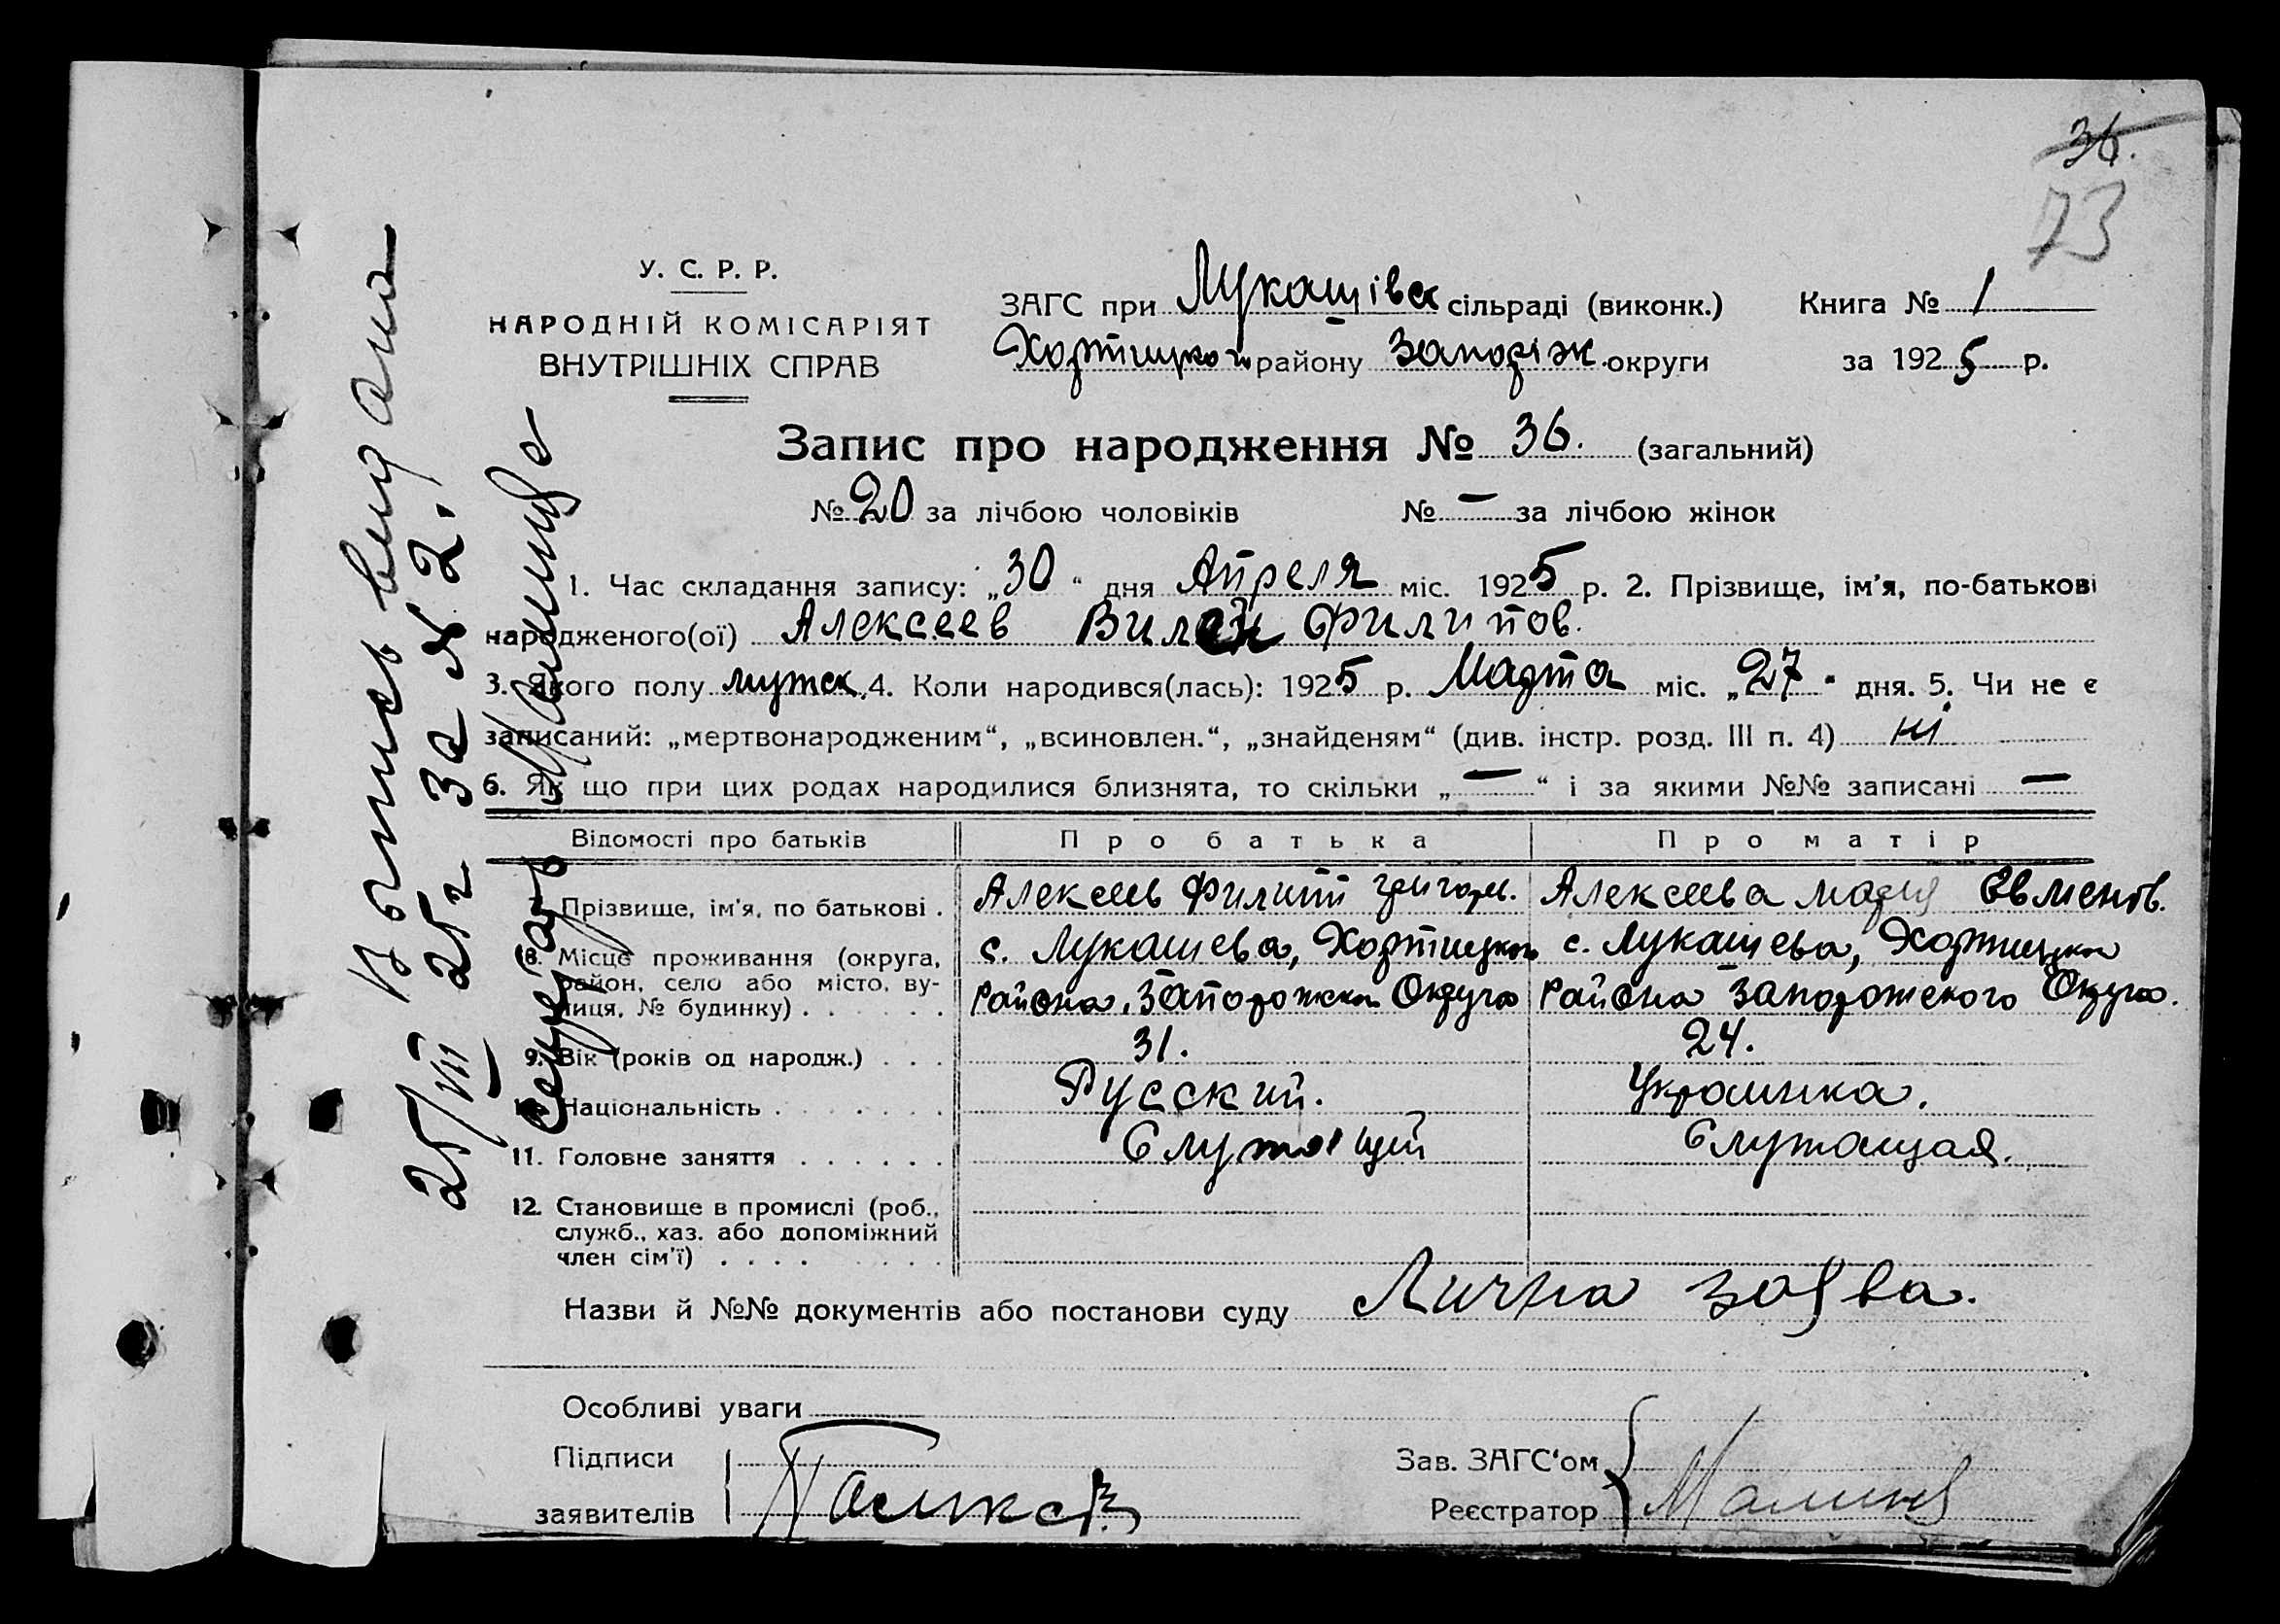 36.
73
У. С. Р. Р.
НАРОДНІЙ КОМІСАРІЯТ
ВНУТРІШНІХ СПРАВ
ЗАГС при Лукашівск сільраді (виконк.)
Хортицького району Запоріж. округи
Книга № 1
за 1925 р.
Запис про народження № 36. (загальний)
№ 20 за лічбою чоловіків № — за лічбою жінок
1. Час складання запису: „30“ дня Апреля міс. 1925 р. 2. Прізвище, ім'я, по-батькові
народженого(ої) Алексеев Вилен Филипов.
3. Якого полу мужск. 4. Коли народився(лась): 1925 р. Марта міс. „27“ дня. 5. Чи не є
записаний: „мертвонародженим“, „всиновлен.“, „знайденям“ (див. інстр. розд. III п. 4) ні
6. Як що при цих родах народилися близнята, то скільки „—“ і за якими №№ записані —
Відомості про батьків Про батька Про матір
7. Прізвище, ім'я, по батькові . Алексеев Филипп Григорьев. Алексеева Мария Евменов.
8. Місце проживання (округа, с. Лукашева, Хортицкого с. Лукашева, Хортицкого
район, село або місто, ву-
лиця, № будинку) . . . . . . Района, Запорожскаго Округа Района Запорожского Округа.
9. Вік (років од народж.) . . . 31. 24.
10. Національність . . . . . . . Русский. Украинка.
11. Головне заняття . . . . . . Служащий Служащая.
12. Становище в промислі (роб.,
служб., хаз. або допоміжний
член сім'ї) . . . . . . . .
Назви й №№ документів або постанови суду Лична заява.
Особливі уваги
Підписи
заявителів
Зав. ЗАГС'ом
Реєстратор
Выпись выдана
25/VII 25 г за № 2.
Секретарь